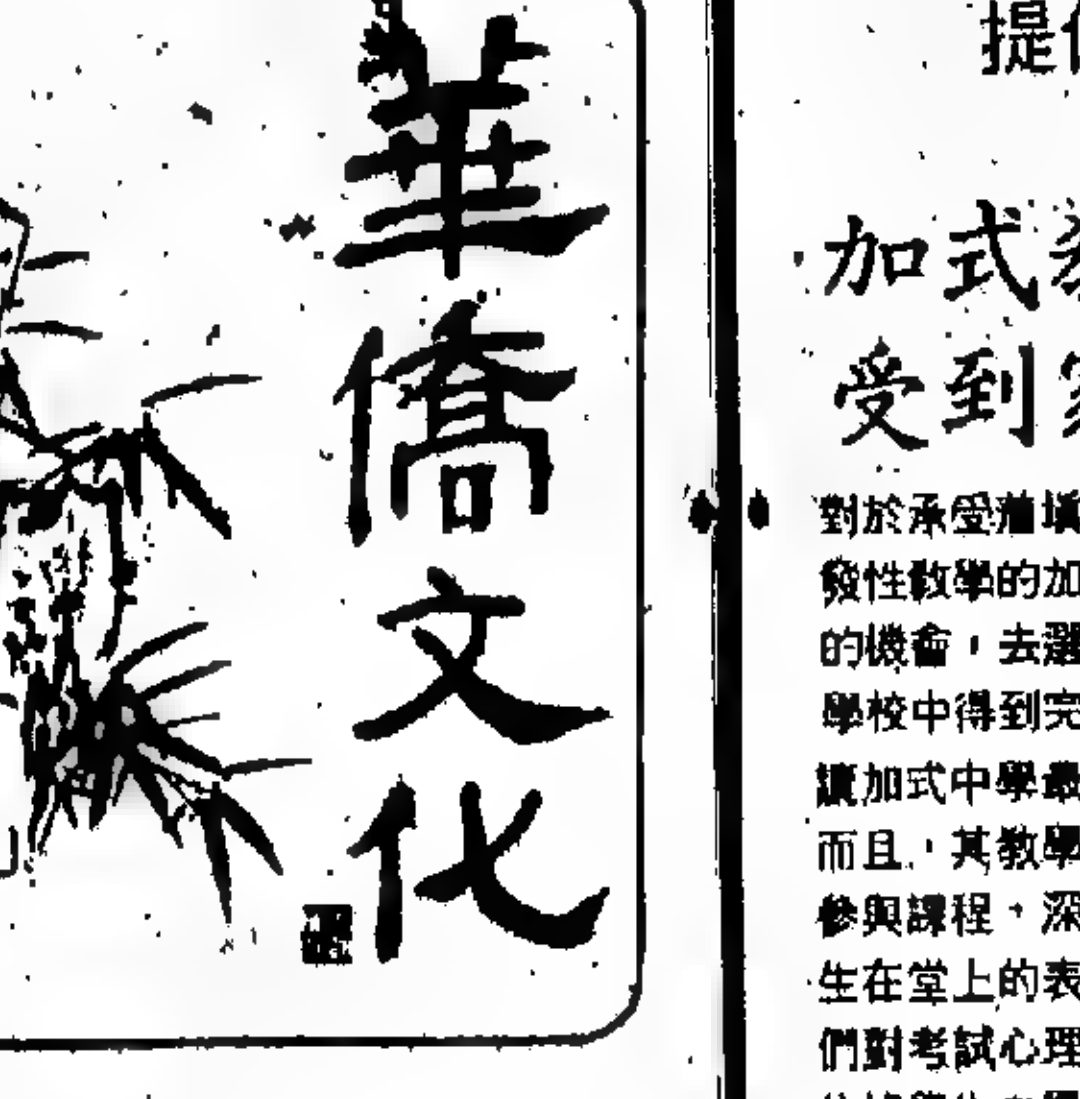 華僑文化
提
加式
受到
對於承受
發性教學的加
的機會，去選
學校中得到完
讀加式中學最
而且，其教學
參與課程，深
生在堂上的表
們對考試心理